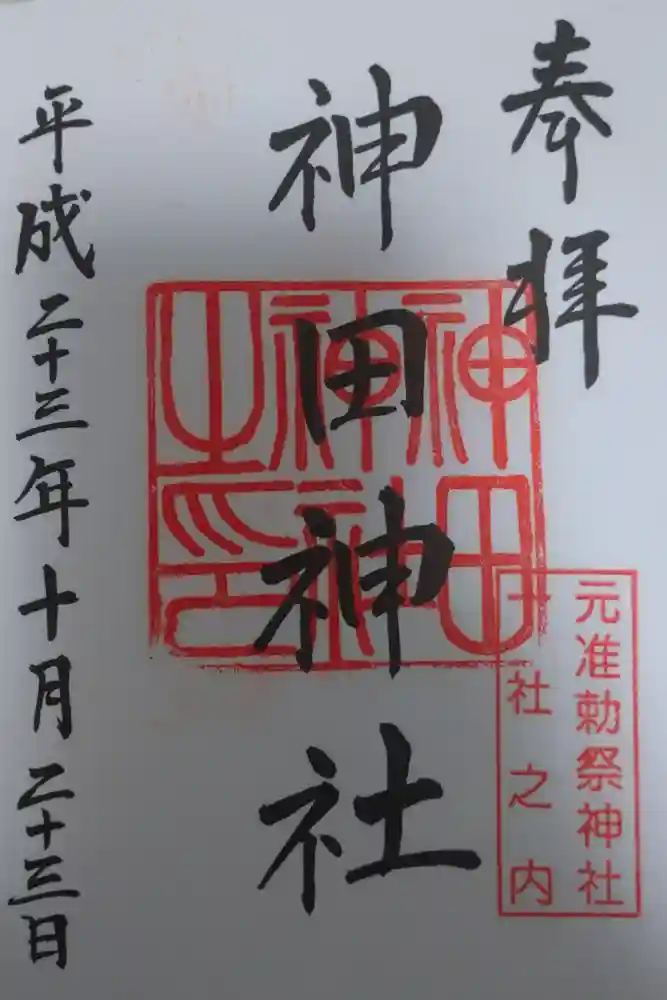 奉拝
元准勅祭神社
十社之内
神田神社
神田神社之印
平成二十三年十月二十三日